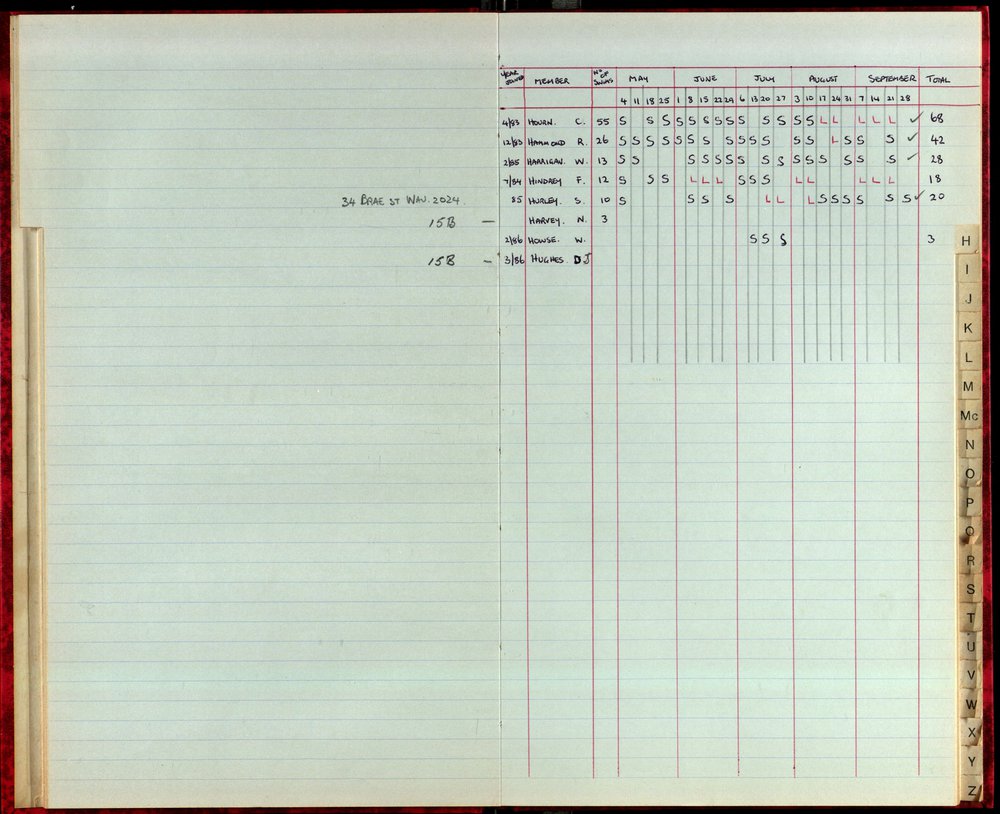 YEAR JOINED MEMBER NO OF SWIMS MAY JUNE JULY AUGUST SEPTEMBER TOTAL
4 11 18 25 1 8 15 22 29 6 13 20 27 3 10 17 24 31 7 14 21 28
4/83 HOURN. C. 55 S S S S S S S S S S S S S L L L L L ✓ 68
12/83 HAMMOND R. 26 S S S S S S S S S S S S S L S S S ✓ 42
2/85 HARRIGAN. W. 13 S S S S S S S S S S S S S S S ✓ 28
7/84 HINDREY F. 12 S S S L L L S S S L L L L L 18
34 BRAE ST WAV. 2024 85 HURLEY. S. 10 S S S S L L L S S S S S S ✓ 20
15B — HARVEY. N. 3
2/86 HOWSE. W. S S S 3
15B — 3/86 HUGHES. D J
H
I
J
K
L
M
Mc
N
O
P
Q
R
S
T
U
V
W
X
Y
Z